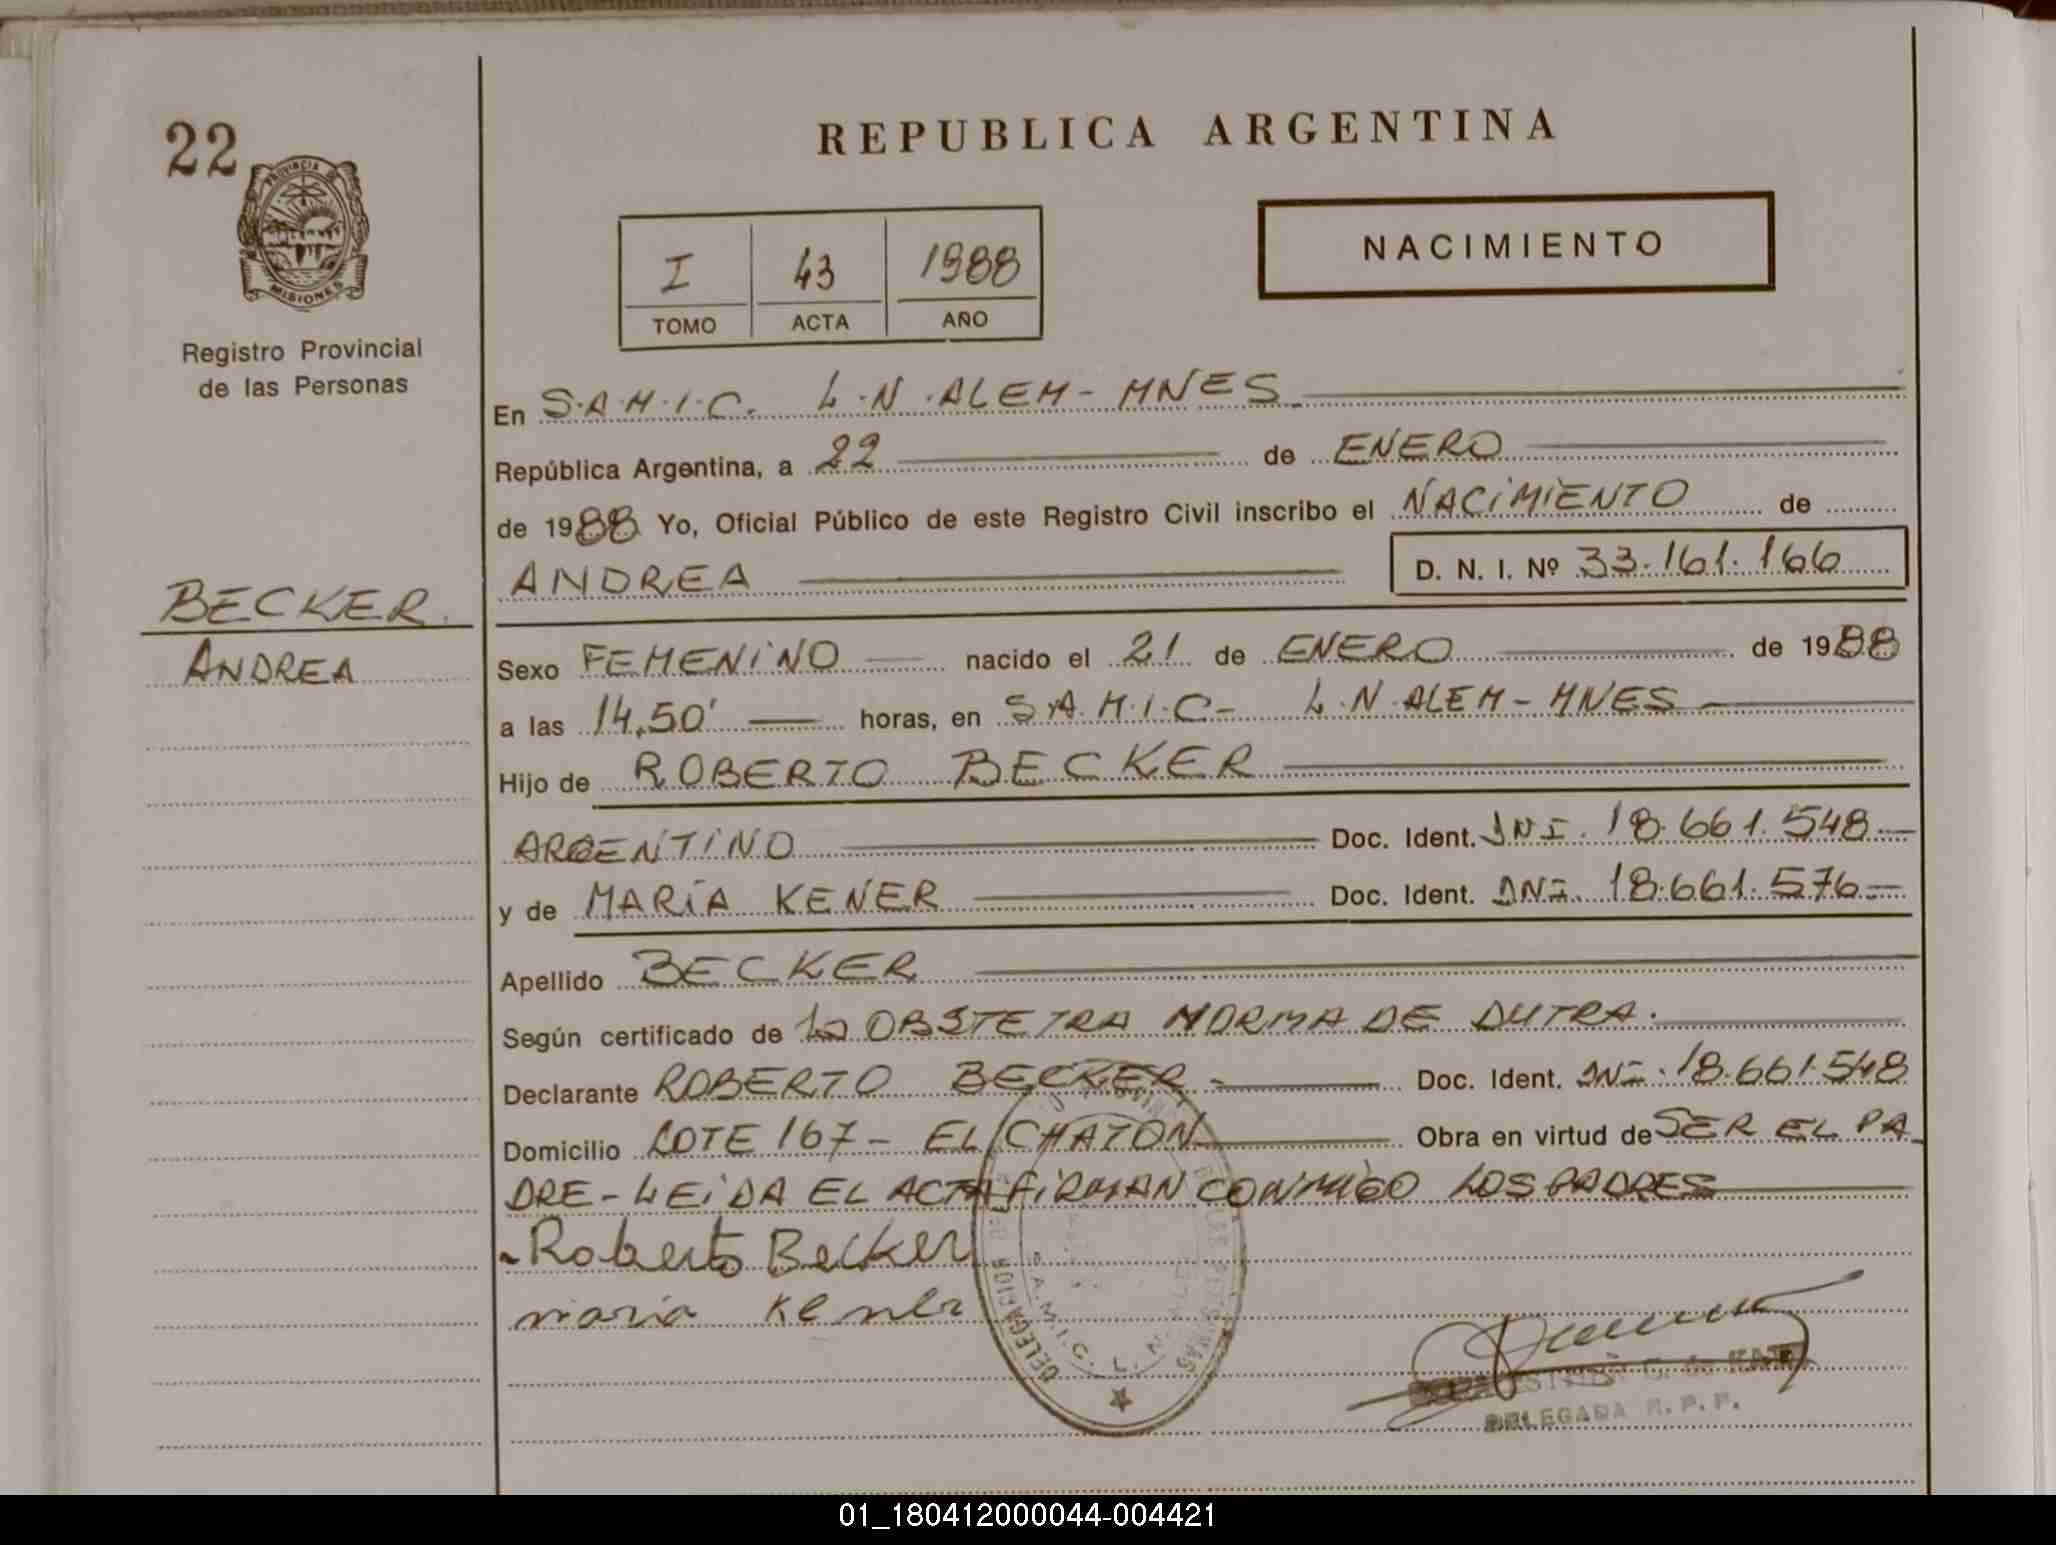 22
PROVINCIA DE
MISIONES
Registro Provincial
de las Personas
BECKER.
ANDREA
REPUBLICA ARGENTINA
I 43 1988
TOMO ACTA AÑO
NACIMIENTO
En S.A.M.I.C. L.N.ALEM - MNES
República Argentina, a 22 de ENERO
de 1988 Yo, Oficial Público de este Registro Civil inscribo el NACIMIENTO de
ANDREA D. N. I. Nº 33.161.166
Sexo FEMENINO nacido el 21 de ENERO de 1988
a las 14,50' horas, en S.A.M.I.C- L.N.ALEM - MNES
Hijo de ROBERTO BECKER
ARGENTINO Doc. Ident. DNI. 18.661.548
y de MARÍA KENER Doc. Ident. DNI. 18.661.576
Apellido BECKER
Según certificado de la OBSTETRA NORMA DE DUTRA.
Declarante ROBERTO BECKER Doc. Ident. DNI. 18.661.548
Domicilio LOTE 167 - EL CHATON Obra en virtud de SER EL PA
DRE - LEIDA EL ACTA FIRMAN CONMIGO LOS PADRES
Roberto Becker
maria Kener
DELEGACION
S.A.M.I.C. L.N.
DELEGADA R.P.P.
01_180412000044-004421